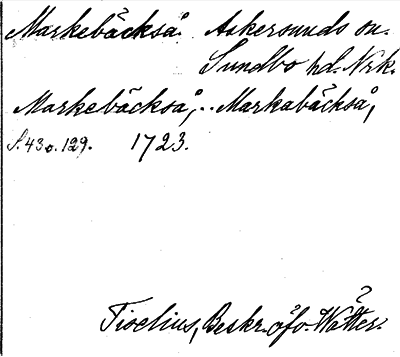 Markebäckså. Askersunds sn.
Sundbo hd. Nrk.
Markebäckså, .. Markabäckså,
S. 43 o. 129. 1723.
Tiselius, Beskr. öfv. Wätter.